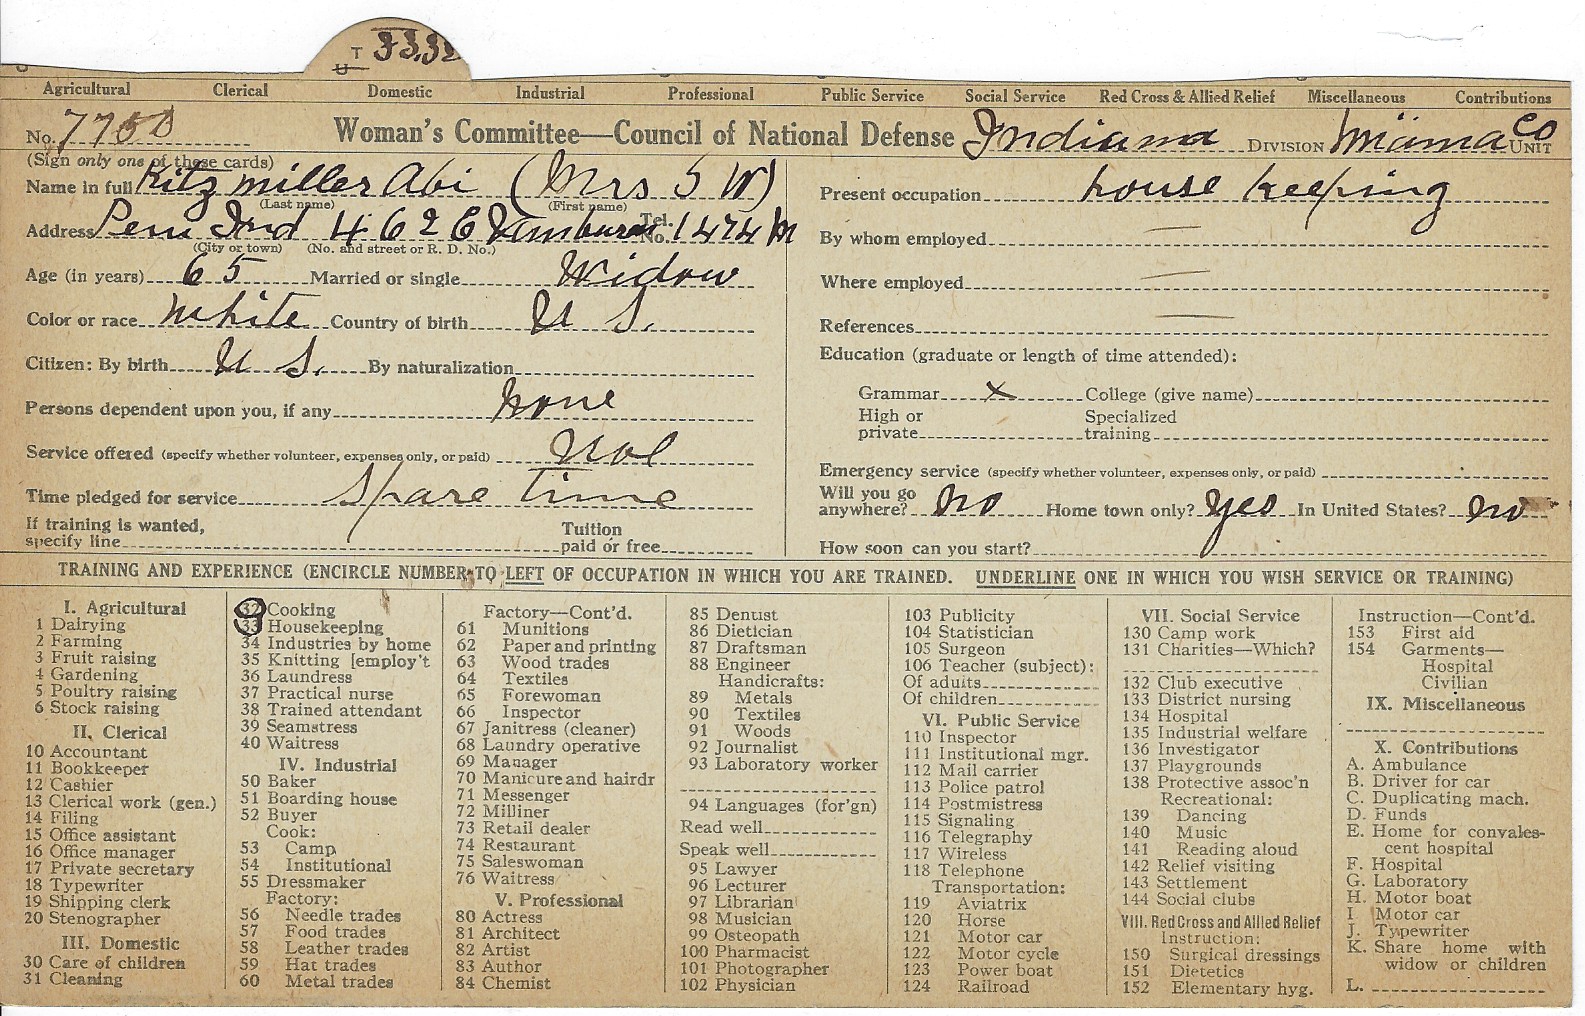 T 33.32
U
Agricultural Clerical Domestic Industrial Professional Public Service Social Service Red Cross & Allied Relief Miscellaneous Contributions
No. 7750 Woman's Committee—Council of National Defense Indiana DIVISION Miama Co UNIT
(Sign only one of these cards)
Name in full Kitzmiller Abi (Mrs S W)
(Last name) (First name)
Address Peru Ind 462 E Tel. No. 1474 M
(City or town) (No. and street or R. D. No.)
Age (in years) 65 Married or single Widow
Color or race White Country of birth U S.
Citizen: By birth U S. By naturalization
Persons dependent upon you, if any None
Service offered (specify whether volunteer, expenses only, or paid) Vol
Time pledged for service Spare time
If training is wanted, specify line Tuition paid or free
Present occupation house keeping
By whom employed —
Where employed —
References —
Education (graduate or length of time attended):
Grammar x College (give name)
High or private Specialized training
Emergency service (specify whether volunteer, expenses only, or paid)
Will you go anywhere? No Home town only? Yes In United States? no
How soon can you start?
TRAINING AND EXPERIENCE (ENCIRCLE NUMBER TO LEFT OF OCCUPATION IN WHICH YOU ARE TRAINED. UNDERLINE ONE IN WHICH YOU WISH SERVICE OR TRAINING)
I. Agricultural
1 Dairying
2 Farming
3 Fruit raising
4 Gardening
5 Poultry raising
6 Stock raising
II. Clerical
10 Accountant
11 Bookkeeper
12 Cashier
13 Clerical work (gen.)
14 Filing
15 Office assistant
16 Office manager
17 Private secretary
18 Typewriter
19 Shipping clerk
20 Stenographer
III. Domestic
30 Care of children
31 Cleaning
32 Cooking
33 Housekeeping
34 Industries by home
35 Knitting [employ't
36 Laundress
37 Practical nurse
38 Trained attendant
39 Seamstress
40 Waitress
IV. Industrial
50 Baker
51 Boarding house
52 Buyer
Cook:
53 Camp
54 Institutional
55 Dressmaker
Factory:
56 Needle trades
57 Food trades
58 Leather trades
59 Hat trades
60 Metal trades
Factory—Cont'd.
61 Munitions
62 Paper and printing
63 Wood trades
64 Textiles
65 Forewoman
66 Inspector
67 Janitress (cleaner)
68 Laundry operative
69 Manager
70 Manicure and hairdr
71 Messenger
72 Milliner
73 Retail dealer
74 Restaurant
75 Saleswoman
76 Waitress
V. Professional
80 Actress
81 Architect
82 Artist
83 Author
84 Chemist
85 Dentist
86 Dietician
87 Draftsman
88 Engineer
Handicrafts:
89 Metals
90 Textiles
91 Woods
92 Journalist
93 Laboratory worker
94 Languages (for'gn)
Read well
Speak well
95 Lawyer
96 Lecturer
97 Librarian
98 Musician
99 Osteopath
100 Pharmacist
101 Photographer
102 Physician
103 Publicity
104 Statistician
105 Surgeon
106 Teacher (subject):
Of adults
Of children
VI. Public Service
110 Inspector
111 Institutional mgr.
112 Mail carrier
113 Police patrol
114 Postmistress
115 Signaling
116 Telegraphy
117 Wireless
118 Telephone
Transportation:
119 Aviatrix
120 Horse
121 Motor car
122 Motor cycle
123 Power boat
124 Railroad
VII. Social Service
130 Camp work
131 Charities—Which?
132 Club executive
133 District nursing
134 Hospital
135 Industrial welfare
136 Investigator
137 Playgrounds
138 Protective assoc'n
Recreational:
139 Dancing
140 Music
141 Reading aloud
142 Relief visiting
143 Settlement
144 Social clubs
VIII. Red Cross and Allied Relief
Instruction:
150 Surgical dressings
151 Dietetics
152 Elementary hyg.
Instruction—Cont'd.
153 First aid
154 Garments—
Hospital
Civilian
IX. Miscellaneous
X. Contributions
A. Ambulance
B. Driver for car
C. Duplicating mach.
D. Funds
E. Home for convales-
cent hospital
F. Hospital
G. Laboratory
H. Motor boat
I. Motor car
J. Typewriter
K. Share home with
widow or children
L.